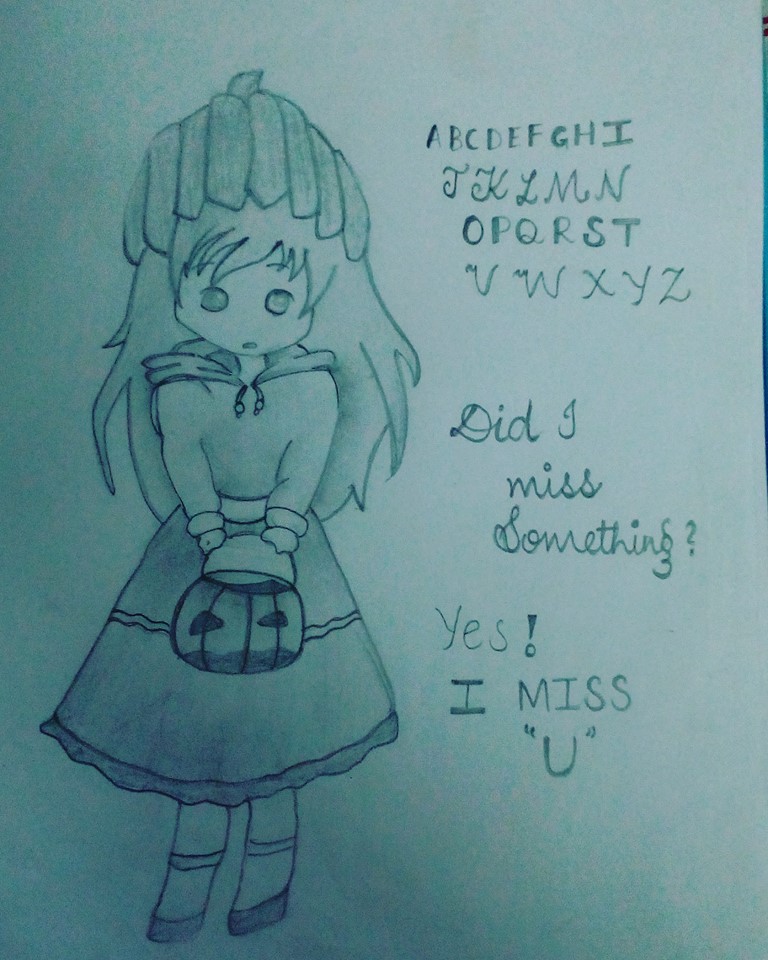 ABCDEFGHI
JKLMN
OPQRST
VWXYZ
Did I
miss
Something?
Yes!
I MISS
"U"